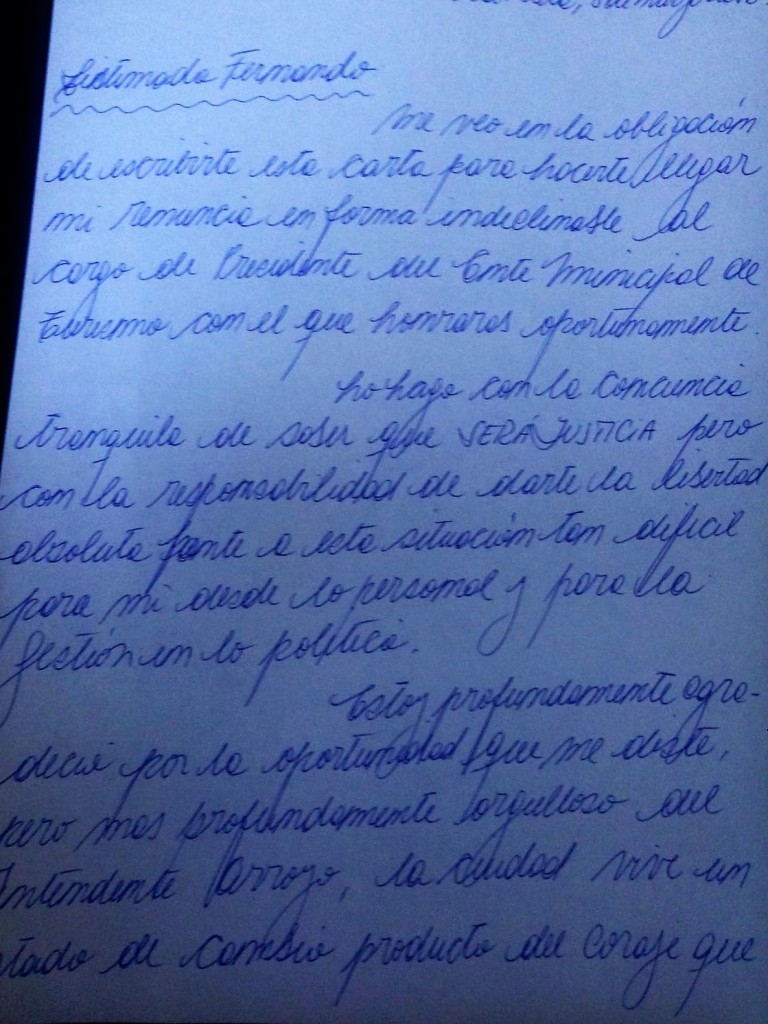 Estimado Fernando
Me veo en la obligación
de escribirte esta carta para hacerte llegar
mi renuncia en forma indeclinable al
cargo de Presidente del Ente Municipal de
Turismo con el que honraras oportunamente.
Lo hago con la conciencia
tranquila de saber que SERÁ JUSTICIA pero
con la responsabilidad de darte la libertad
absoluta frente a esta situación tan dificil
para mi desde lo personal y para la
gestión en lo politico.
Estoy profundamente agra-
decido por la oportunidad que me diste,
pero mas profundamente orgulloso del
Intendente Arroyo, la ciudad vive un
tado de cambio producto del coraje que